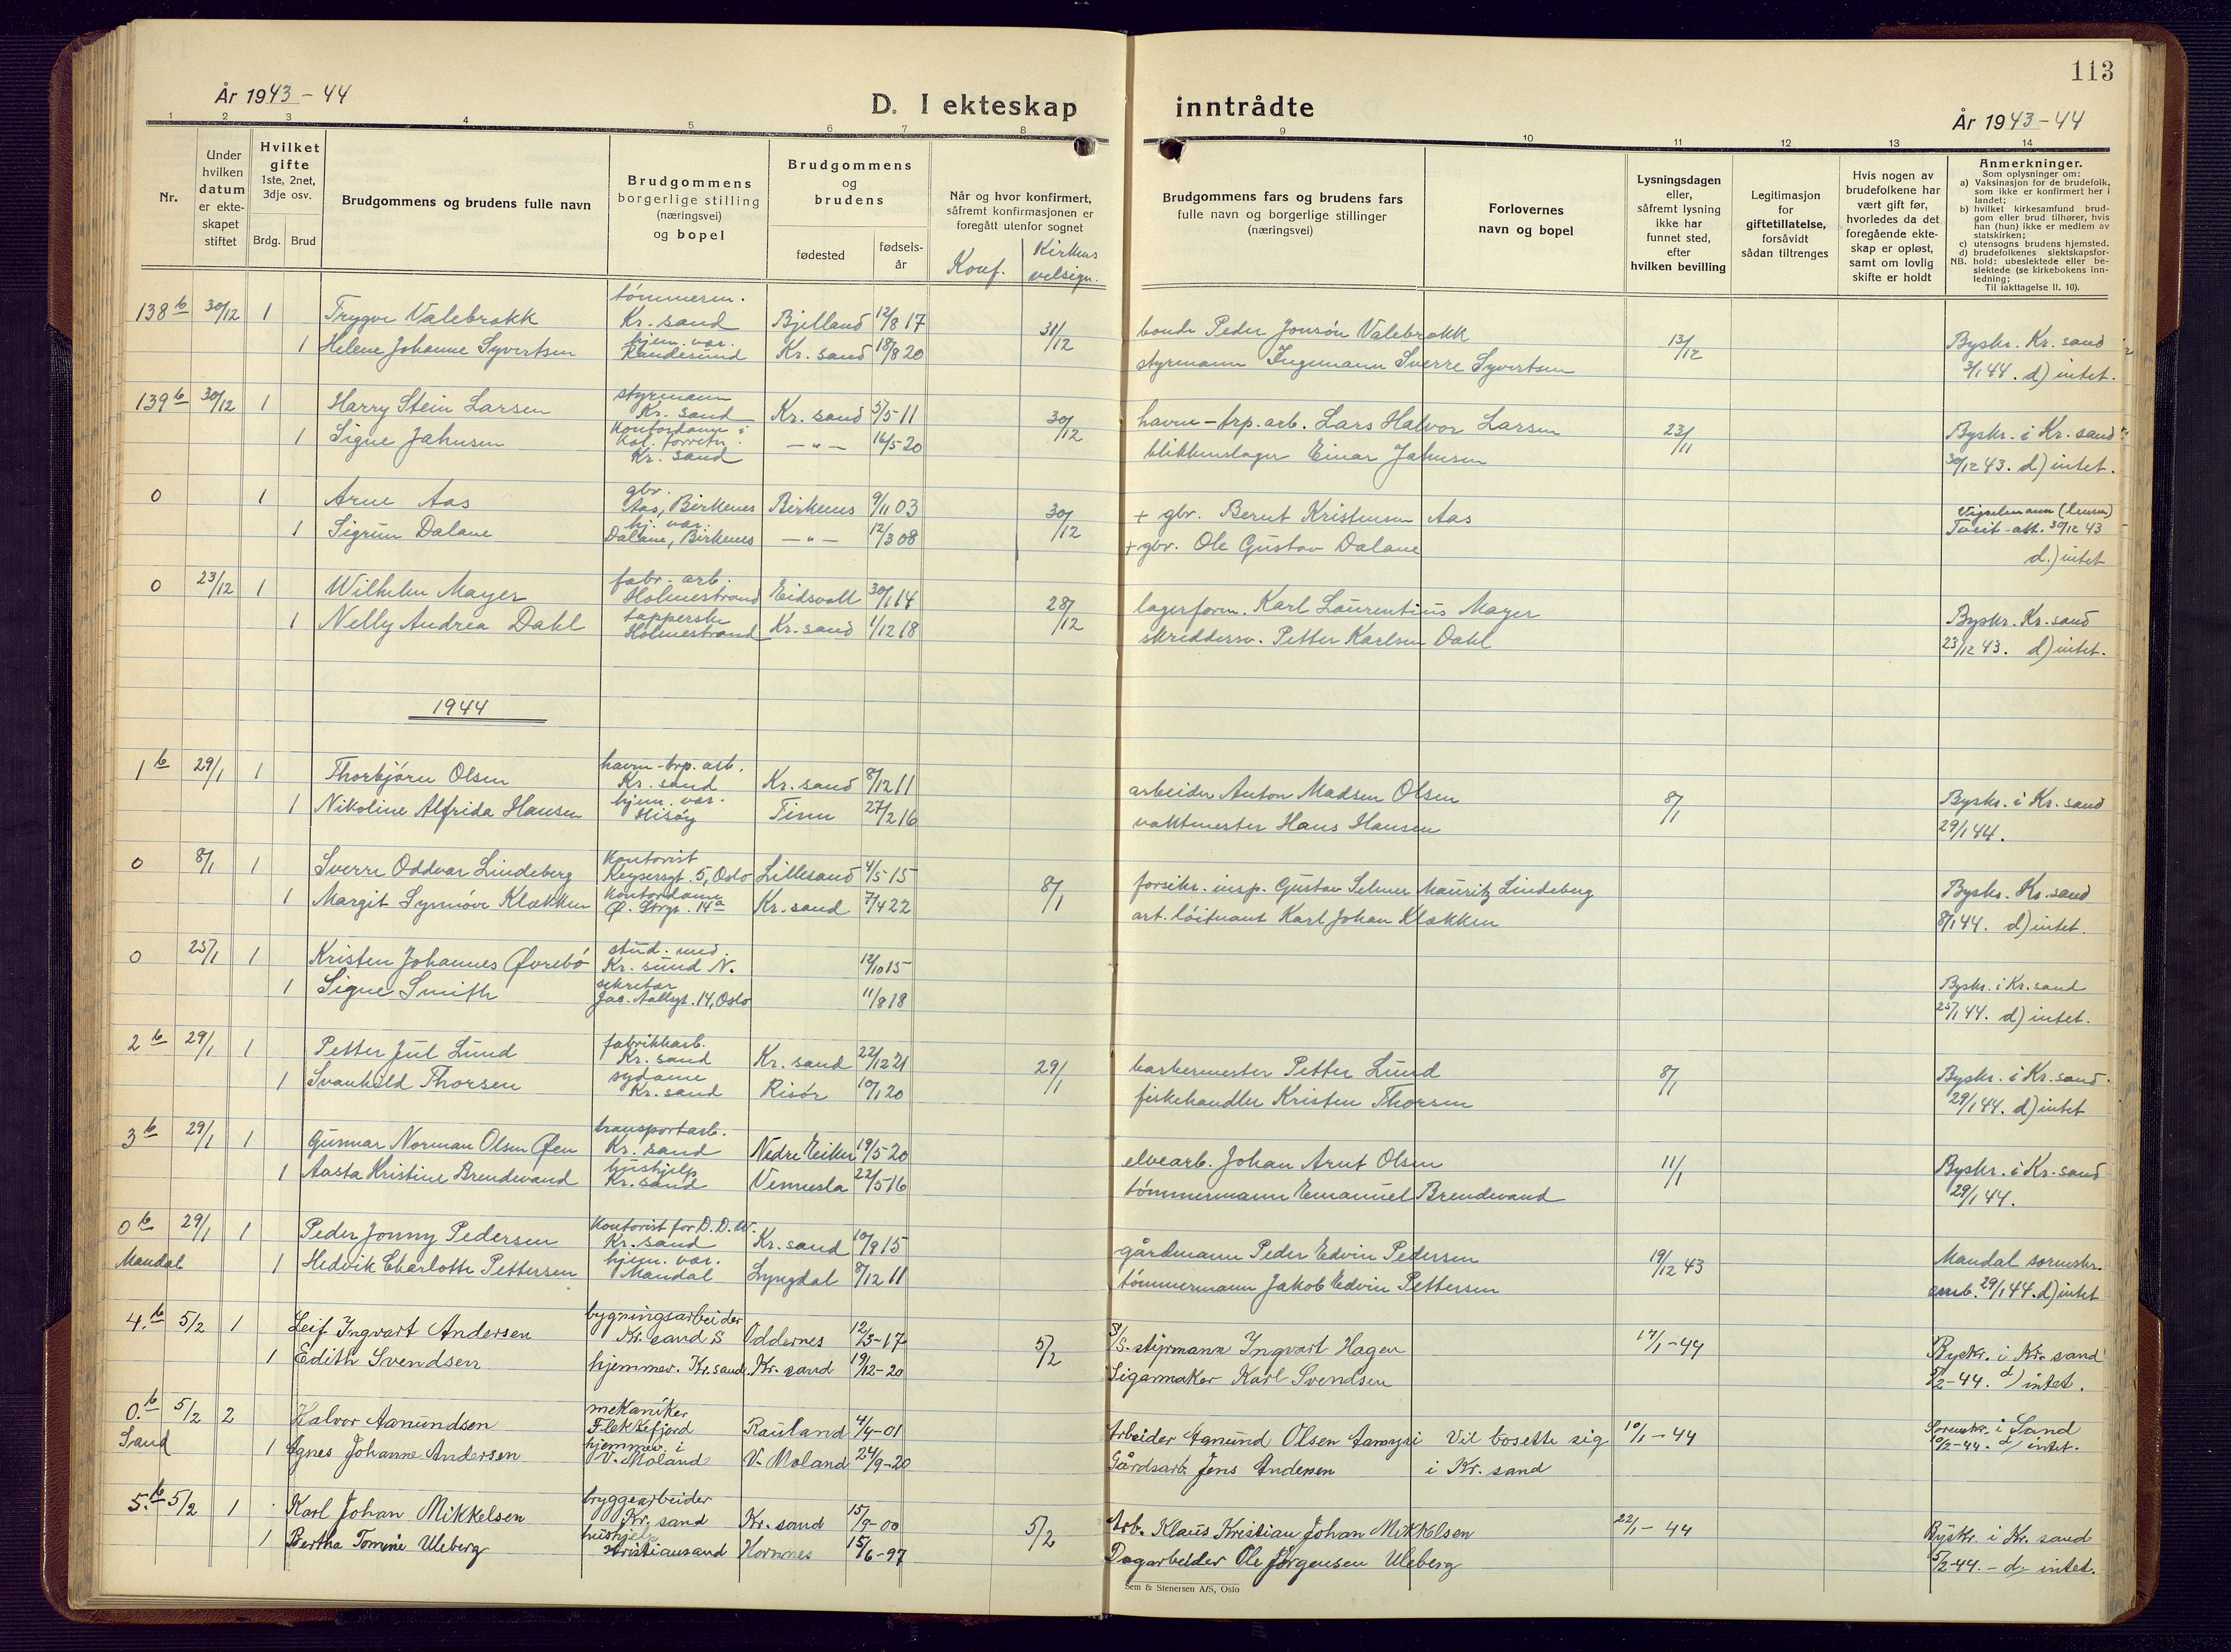 113
År 1943-44
D. I ekteskap inntrådte
År 1943-44
1 2 3 4 5 6 7 8 9 10 11 12 13 14
Nr.
Under hvilken datum er ekte-skapet stiftet
Hvilket gifte 1ste, 2net, 3dje osv.
Brdg. Brud
Brudgommens og brudens fulle navn
Brudgommens borgerlige stilling (næringsvei) og bopel
Brudgommens og brudens
fødested
fødsels-år
Når og hvor konfirmert, såfremt konfirmasjonen er foregått utenfor sognet
Konf. Kirkens velsign.
Brudgommens fars og brudens fars fulle navn og borgerlige stillinger (næringsvei)
Forlovernes navn og bopel
Lysningsdagen eller, såfremt lysning ikke har funnet sted, efter hvilken bevilling
Legitimasjon for giftetillatelse, forsåvidt sådan tiltrenges
Hvis nogen av brudefolkene har vært gift før, hvorledes da det foregående ekte-skap er opløst, samt om lovlig skifte er holdt
Anmerkninger.
Som oplysninger om:
a) Vaksinasjon for de brudefolk, som ikke er konfirmert her i landet;
b) hvilket kirkesamfund brud-gom eller brud tilhører, hvis han (hun) ikke er medlem av statskirken;
c) utensogns brudens hjemsted.
d) brudefolkenes slektskapsfor-hold: ubeslektede eller be-slektede (se kirkebokens inn-ledning;
NB.
Til iakttagelse II. 10).
138 b 30/12 1 Trygve Valebrokk tømmerm. Kr. sand Bjelland 12/8 17 31/12 bonde Peder Jonsön Valebrokk 13/12 Byskr. Kr. sand
1 Helene Johanne Syvertsen hjem. var. Randesund Kr. sand 18/8 20 styrmann Ingemann Sverre Syvertsen 3/1 44. d) intet.
139 b 30/12 1 Harry Stein Larsen styrmann Kr. sand Kr. sand 5/5 11 30/12 havne-trp. arb. Lars Halvor Larsen 23/11 Byskr. i Kr. sand
1 Signe Jahnsen Kontordame i Kol. forretn. Kr. sand -"- 16/5 20 blikkenslager Einar Jahnsen 30/12 43. d) intet.
0 1 Arne Aas gbr. Aas, Birkenes Birkenes 9/11 03 30/12 + gbr. Bernt Kristensen Aas
1 Sigrun Dalane hj. var. Dalane, Birkenes -"- 12/3 08 + gbr. Ole Gustav Dalane Tveit - att. 30/12 43 d.) intet
0 23/12 1 Wilhelm Mayer fabr. arb. Holmestrand Eidsvoll 30/1 14 28/12 lagerform. Karl Laurentius Mayer Byskr. Kr. sand
1 Nelly Andrea Dahl tapperske Holmestrand Kr. sand 1/12 18 skreddersv. Petter Karlsen Dahl 23/12 43. d) intet.
1944
1 b 29/1 1 Thorbjørn Olsen havne-trp. arb. Kr. sand Kr. sand 8/12 11 arbeider Anton Madsen Olsen 8/1 Byskr. i Kr. sand
1 Nikoline Alfrida Hansen hjem. var. Hisøy Tinn 27/2 16 vaktmester Hans Hansen 29/1 44.
0 8/1 1 Sverre Oddvar Lindeberg Kontorist Keysersgt. 5, Oslo Lillesand 4/5 15 8/1 forsikr. insp. Gustav Selmer Mauritz Lindeberg Byskr. Kr. sand
1 Margit Synnøve Klækken Kontordame Ø. Strgt. 14a Kr. sand 7/4 22 art. løitnant Karl Johan Klækken 8/1 44. d) intet.
0 25/1 1 Kristen Johannes Øvrebö stud. med. Kr. sund N. 12/10 15 Byskr. i Kr. sand
1 Signe Smith sekretær Jac. Aallsgt. 14, Oslo 11/8 18 25/1 44. d) intet.
2 b 29/1 1 Petter Jul Lund fabrikkarb. Kr. sand Kr. sand 22/12 21 29/1 barbermester Petter Lund 8/1 Byskr. i Kr. sand
1 Svanhild Thorsen sydame Kr. sand Risör 10/1 20 fiskehandler Kristen Thorsen 29/1 44. d) intet
3 b 29/1 1 Gunnar Norman Olsen Øen transportarb. Kr. sand Nedre Eiker 19/5 20 elvearb. Johan Arnt Olsen 11/1 Byskr. i Kr. sand
1 Aasta Kristine Brendevand hushjelp Kr. sand Vennesla 22/5 16 tømmermann Emanuel Brendevand 29/1 44.
0 b 29/1 1 Peder Jonny Pedersen Kontorist for D. D. W. Kr. sand Kr. sand 10/9 15 gårdmann Peder Edvin Pedersen 19/12 43 Mandal sorenskr.
Mandal 1 Hedvik Charlotte Pettersen hjem. var. Mandal Lyngdal 8/12 11 tømmermann Jakob Edvin Pettersen emb. 29/1 44. d) intet
4. b 5/2 1 Leif Ingvart Andersen bygningsarbeider Kr. sand S Oddernes 12/3-17 5/2 S/S. styrmann Ingvart Hagen 17/1-44 Byskr. i Kr. sand
1 Edith Svendsen hjemmev. Kr. sand. Kr. sand 19/12-20 Sigarmaker Karl Svendsen 5/2-44. d) intet.
0. b 5/2 2 Halvor Aamundsen mekaniker Flekkefjord Rauland 4/9-01 Arbeider Aamund Olsen Vil bosette sig 10/1-44 Sorenskr. i Sand
Sand 1 Agnes Johanne Andersen hjemmev. i V. Moland V. Moland 24/9-20 Gårdsarb. Jens Andersen i Kr. sand 10/2-44. d) intet.
5. b 5/2 1 Karl Johan Mikkelsen bryggearbeider Kr. sand Kr. sand 15/9-00 5/2 Arb. Klaus Kristian Johan Mikkelsen 22/1-44 Byskr. i Kr. sand
1 Bertha Tomine Uleberg hushjelp Kristiansand Hornnes 15/6-97 Dagarbeider Ole Jørgensen Uleberg 5/2-44. - d. intet.
Sem & Stenersen A/S, Oslo